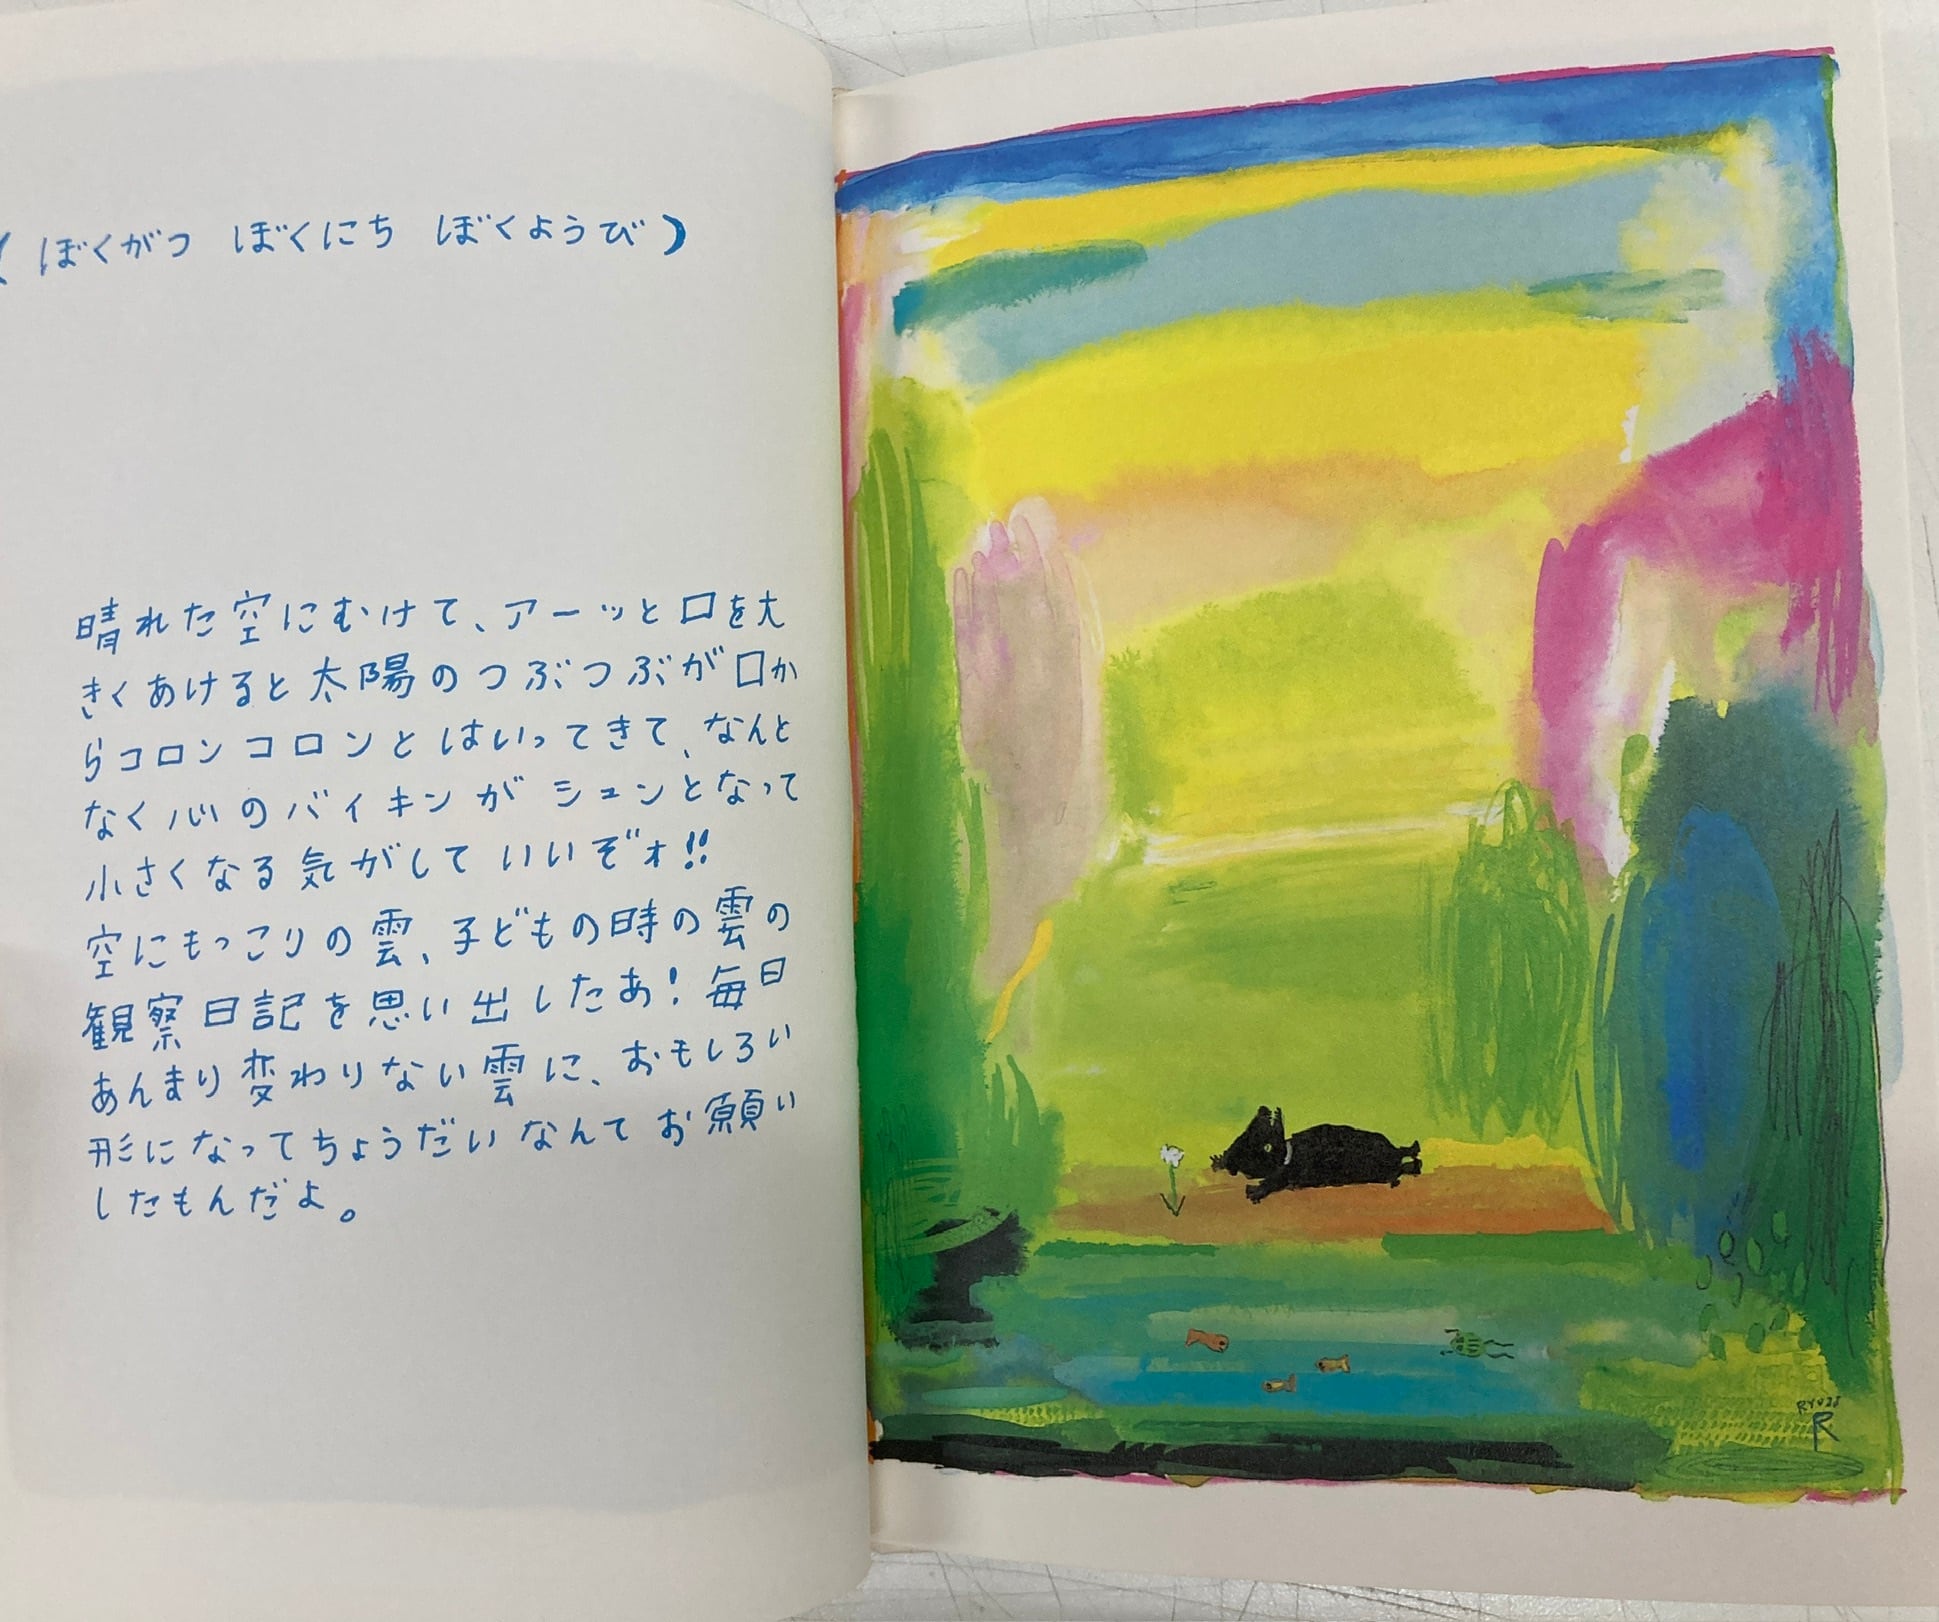 (ぼくがつ ぼくにち ぼくようび)
晴れた空にむけて、アーッと口を大
きくあけると太陽のつぶつぶが口か
らコロンコロンとはいってきて、なんと
なく心のバイキンがシュンとなって
小さくなる気がしていいぞォ!!
空にもっこりの雲、子どもの時の雲の
観察日記を思い出したあ!毎日
あんまり変わりない雲に、おもしろい
形になってちょうだいなんてお願い
したもんだよ。
RYUJI
R